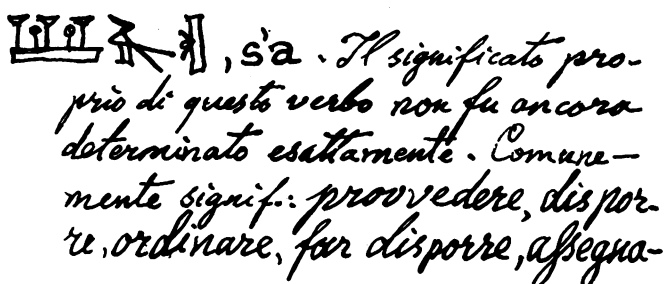 𓆷𓄿𓏛, s'a. Il significato pro-
prio di questo verbo non fu ancora
determinato esattamente. Comune-
mente signif.: provvedere, dispor-
re, ordinare, far disporre, assegna-